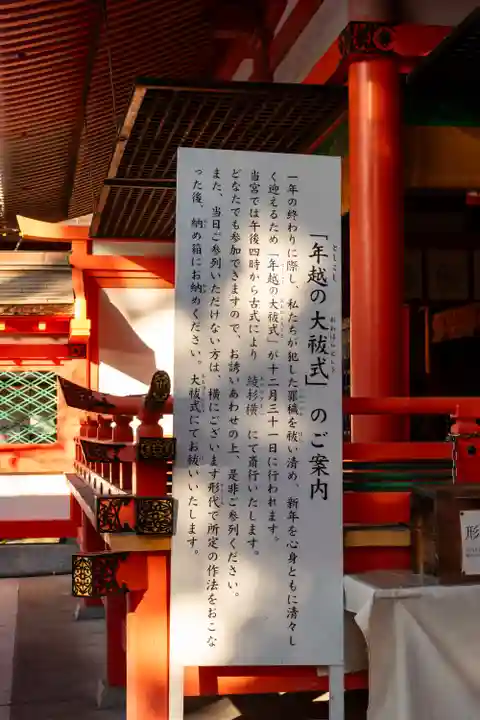 「年越の大祓式」のご案内
一年の終わりに際し、私たちが犯した罪穢を祓い清め、新年を心身ともに清々し
く迎えるため「年越の大祓式」が十二月三十一日に行われます。
当宮では午後四時から古式により 綾杉横 にて斎行いたします。
どなたでも参加できますので、お誘いあわせの上、是非ご参列ください。
また、当日ご参列いただけない方は、横にございます形代で所定の作法をおこな
った後、納め箱にお納めください。大祓式にてお祓いいたします。
形